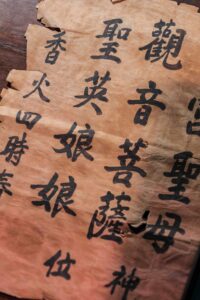 宮聖母
觀音菩薩
聖英娘娘
香火四時奉
神位